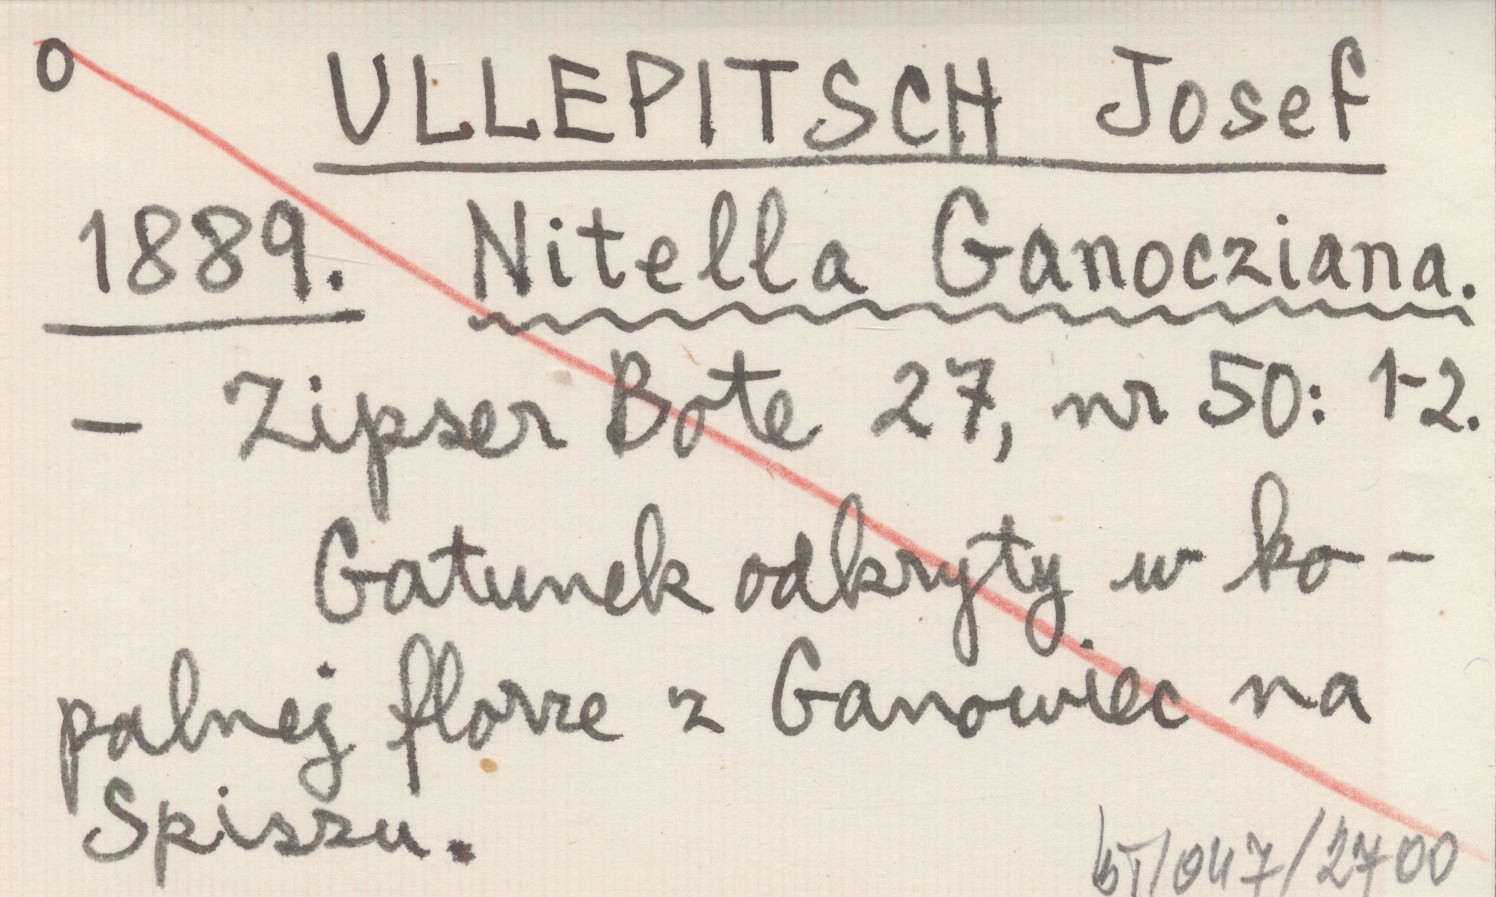 o ULLEPITSCH Josef
1889. Nitella Ganocziana.
- Zipser Bote 27, nr 50: 1-2.
Gatunek odkryty w ko-
palnej florze z Ganowiec na
Spiszu.
/047/2700